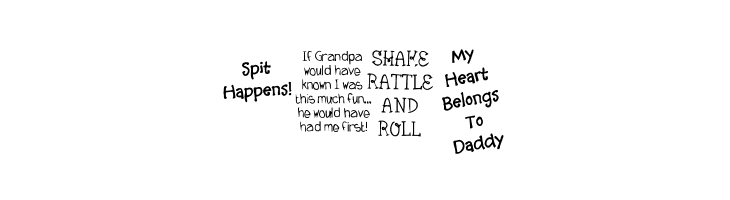 Spit
Happens!
If Grandpa
would have
known I was
this much fun...
he would have
had me first!
SHAKE
RATTLE
AND
ROLL
My
Heart
Belongs
To
Daddy